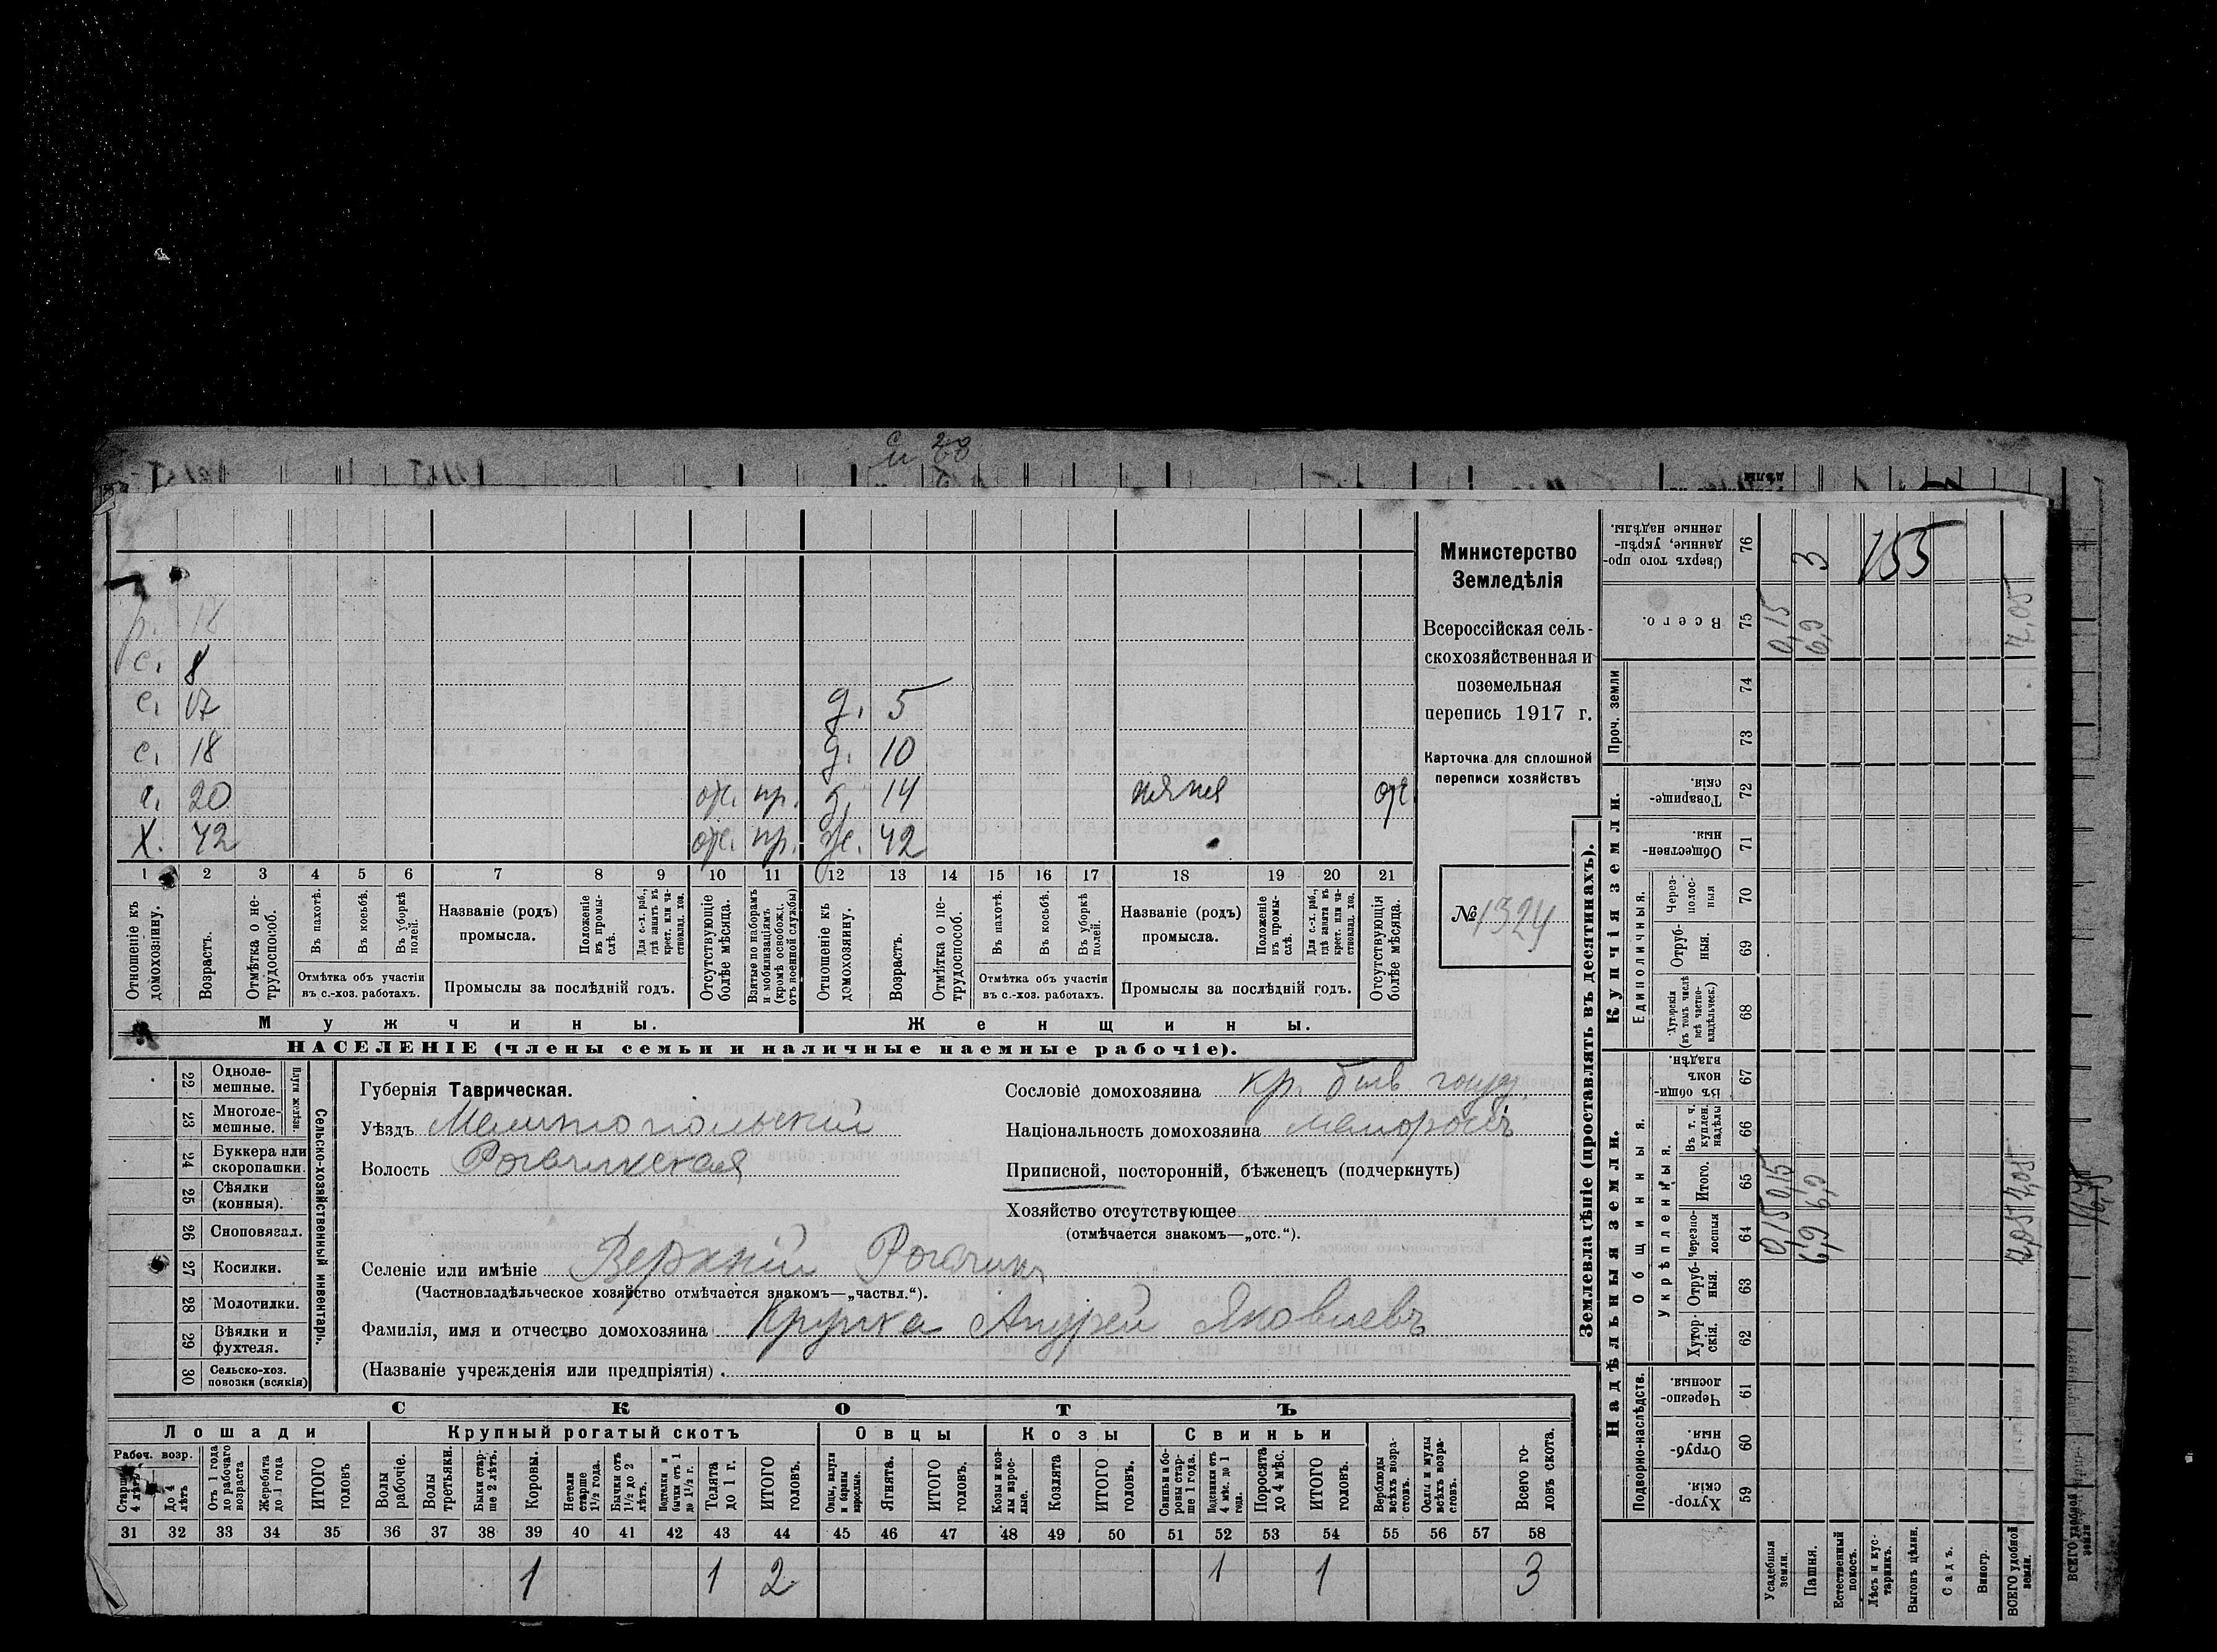 с 28
и 68
р. 18
с. 8
с. 17 д. 5
с. 18 д. 10
с. 20 отс. пр. д. 14 няня отс.
Х. 42 отс. пр. ж. 42
1 2 3 4 5 6 7 8 9 10 11 12 13 14 15 16 17 18 19 20 21
Отношеніе къ домохозяину.
Возрастъ.
Отмѣтка о нетрудоспособ.
Въ пахотѣ.
Въ косьбѣ.
Въ уборкѣ полей.
Отмѣтка объ участіи
въ с.-хоз. работахъ.
Названіе (родъ)
промысла.
Положеніе въ промыслѣ.
Для с.-х. раб., гдѣ занятъ въ крест. или частновлад. хоз.
Промыслы за послѣдній годъ.
Отсутствующіе болѣе мѣсяца.
Взятые по наборамъ и мобилизаціямъ (кромѣ освобожд. отъ военной службы)
Отношеніе къ домохозяину.
Возрастъ.
Отмѣтка о нетрудоспособ.
Въ пахотѣ.
Въ косьбѣ.
Въ уборкѣ полей.
Отмѣтка объ участіи
въ с.-хоз. работахъ.
Названіе (родъ)
промысла.
Положеніе въ промыслѣ.
Для с.-х. раб., гдѣ занята въ крест. или частновлад. хоз.
Промыслы за послѣдній годъ.
Отсутствующія болѣе мѣсяца.
Мужчины. Женщины.
НАСЕЛЕНІЕ (члены семьи и наличные наемные рабочіе).
Министерство
Земледѣлія
Всероссійская сель-
скохозяйственная и
поземельная
перепись 1917 г.
Карточка для сплошной
переписи хозяйствъ
№ 1324
22 Одноле-
мешные.
23 Многоле-
мешные.
Плуги желѣзн.
24 Буккера или
скоропашки.
25 Сѣялки
(конныя).
26 Сноповязал.
27 Косилки.
28 Молотилки.
29 Вѣялки и
фухтеля.
30 Сельско-хоз.
повозки (всякія)
Сельско-хозяйственный инвентарь.
Губернія Таврическая.
Уѣздъ Мелитопольскій
Волость Рогачикская
Сословіе домохозяина кр. быв. госуд.
Національность домохозяина малороссъ
Приписной, посторонній, бѣженецъ (подчеркнуть)
Хозяйство отсутствующее
(отмѣчается знакомъ—„отс.“).
Селеніе или имѣніе Верхній Рогачикъ
(Частновладѣльческое хозяйство отмѣчается знакомъ—„частвл.“).
Фамилія, имя и отчество домохозяина Крупка Андрей Яковлевъ
(Названіе учрежденія или предпріятія)
СКОТЪ
Лошади Крупный рогатый скотъ Овцы Козы Свиньи
Рабоч. возр.
Старше 4 лѣтъ
До 4 лѣтъ
Отъ 1 года до рабочаго возраста
Жеребята до 1 года
ИТОГО головъ
Волы рабочіе.
Волы третьяки.
Быки старше 2 лѣтъ.
Коровы.
Нетели старше 1½ года.
Бычки отъ 1½ до 2 лѣтъ.
Подтелки и бычки отъ 1 до 1½ г.
Телята до 1 г.
ИТОГО головъ.
Овцы, валухи и бараны взрослые.
Ягнята.
ИТОГО головъ.
Козы и козлы взрослые.
Козлята
ИТОГО головъ.
Свиньи и боровы старше 1 года.
Подсвинки отъ 4 мѣс. до 1 года.
Поросята до 4 мѣс.
ИТОГО головъ.
Верблюды всѣхъ возрастовъ.
Ослы и мулы всѣхъ возрастовъ.
Всего головъ скота.
31 32 33 34 35 36 37 38 39 40 41 42 43 44 45 46 47 48 49 50 51 52 53 54 55 56 57 58
1 1 2 1 1 3
Землевладѣніе (проставлять въ десятинахъ).
Надѣльныя земли. Купчія земли. Проч. земли
Подворно-наслѣдств. Общинныя. Единоличныя.
Укрѣпленныя.
Хуторскія. 59
Отрубныя. 60
Черезполосныя. 61
Хуторскія. 62
Отрубныя. 63
Черезполосныя 64 0,15 6,9 7,05
Итого. 65 0,15 6,9 7,05
Въ т. ч. куплен. надѣлы 66
Въ общинномъ владѣн. 67
Хуторскія (въ томъ числѣ всѣ частновладѣльческ.) 68
Отрубныя. 69
Черезполосныя 70
Общественныя. 71
Товарищескія. 72
73
74
Всего. 75 0,15 6,9 7,05
Сверхъ того проданные, укрѣпленные надѣлы. 76 3
155
Усадебныя земли.
Пашня.
Естественный покосъ.
Лѣсъ и кустарникъ.
Выгонъ цѣлин.
Садъ.
Виногр.
ВСЕГО удобной земли.
ВСЕГО удобной земли